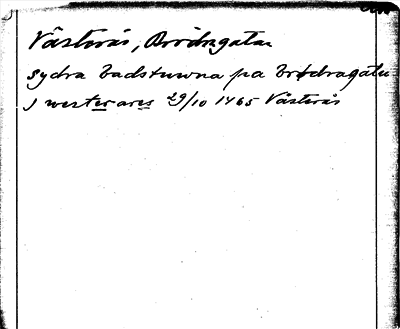 Västerås, Brödragatan
sydra badstuwna pa brödragatu
J westerares 29/10 1465 Västerås